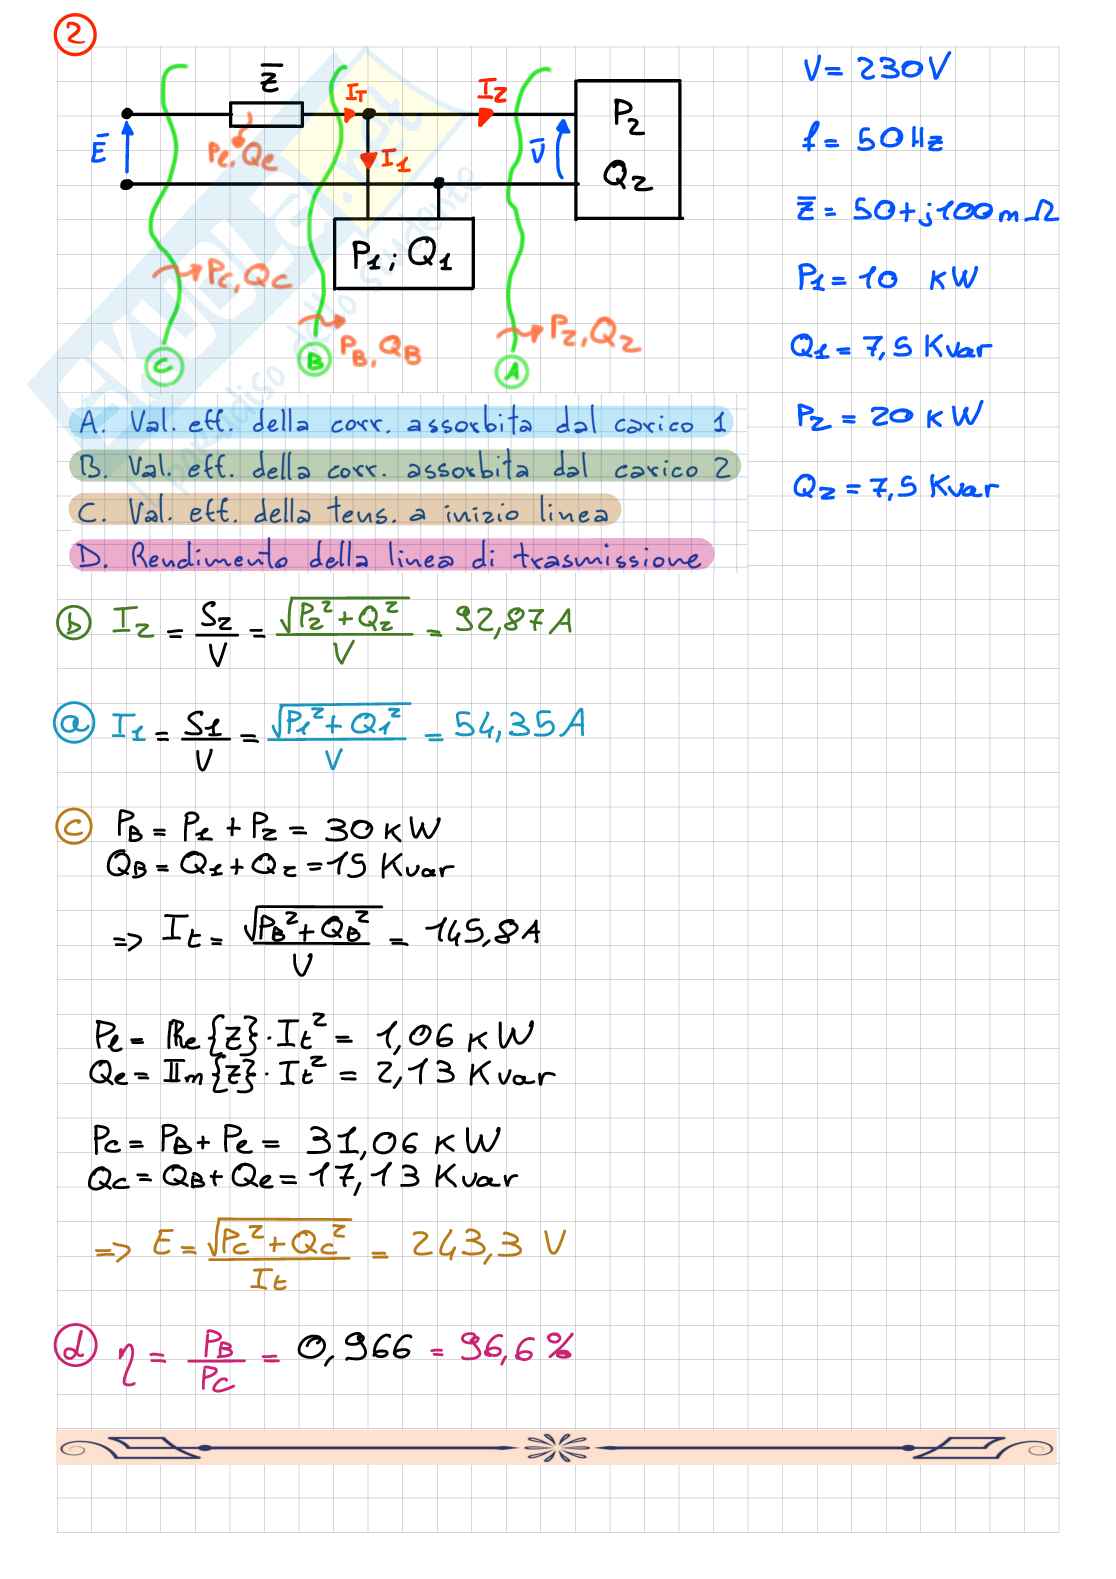 2
Z̅
I_T
I_2
P_2
Q_2
E̅
P_e, Q_e
I_1
V̅
P_1; Q_1
P_C, Q_C
P_B, Q_B
P_2, Q_2
C
B
A
V = 230 V
f = 50 Hz
Z̅ = 50 + j100 m Ω
P_1 = 10 KW
Q_1 = 7,5 Kvar
P_2 = 20 KW
Q_2 = 7,5 Kvar
A. Val. eff. della corr. assorbita dal carico 1
B. Val. eff. della corr. assorbita dal carico 2
C. Val. eff. della tens. a inizio linea
D. Rendimento della linea di trasmissione
b I_2 = S_2/V = √(P_2² + Q_2²)/V = 92,87 A
a I_1 = S_1/V = √(P_1² + Q_1²)/V = 54,35 A
c P_B = P_1 + P_2 = 30 KW
Q_B = Q_1 + Q_2 = 15 Kvar
=> I_t = √(P_B² + Q_B²)/V = 145,8 A
P_e = Re{Z}·I_t² = 1,06 KW
Q_e = Im{Z}·I_t² = 2,13 Kvar
P_C = P_B + P_e = 31,06 KW
Q_C = Q_B + Q_e = 17,13 Kvar
=> E = √(P_C² + Q_C²)/I_t = 243,3 V
d η = P_B/P_C = 0,966 = 96,6 %